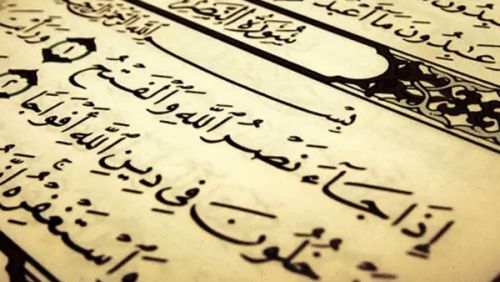 عَٰبِدُونَ مَآ أَعْبُدُ
سُورَةُ النَّصْرِ
بِسْمِ ٱللَّهِ ٱلرَّحْمَٰنِ ٱلرَّحِيمِ
إِذَا جَآءَ نَصْرُ ٱللَّهِ وَٱلْفَتْحُ ١ وَرَأَيْتَ
خُلُونَ فِى دِينِ ٱللَّهِ أَفْوَاجًا ٢
وَٱسْتَغْفِرْهُ إِنَّهُۥ